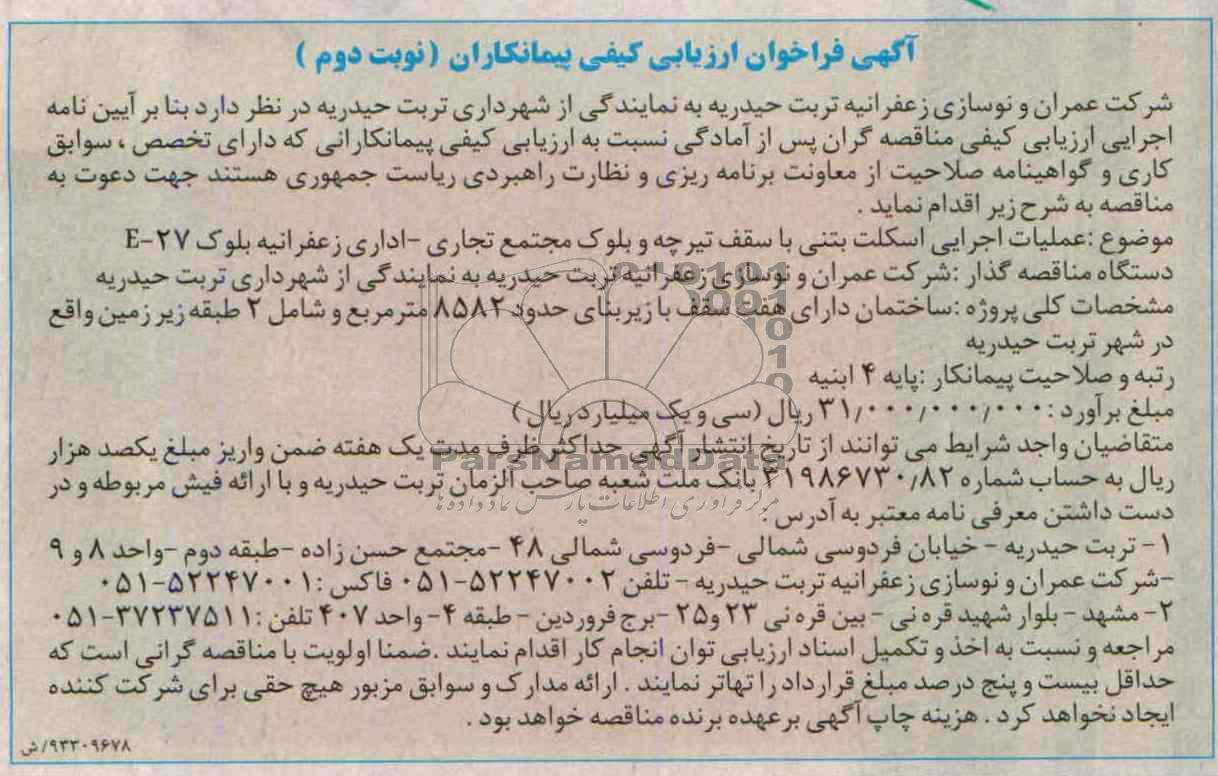 آگهی فراخوان ارزیابی کیفی پیمانکاران (نوبت دوم)
شرکت عمران و نوسازی زعفرانیه تربت حیدریه به نمایندگی از شهرداری تربت حیدریه در نظر دارد بنا بر آیین نامه
اجرایی ارزیابی کیفی مناقصه گران پس از آمادگی نسبت به ارزیابی کیفی پیمانکارانی که دارای تخصص ، سوابق
کاری و گواهینامه صلاحیت از معاونت برنامه ریزی و نظارت راهبردی ریاست جمهوری هستند جهت دعوت به
مناقصه به شرح زیر اقدام نماید .
موضوع :عملیات اجرایی اسکلت بتنی با سقف تیرچه و بلوک مجتمع تجاری -اداری زعفرانیه بلوک E-۲۷
دستگاه مناقصه گذار :شرکت عمران و نوسازی زعفرانیه تربت حیدریه به نمایندگی از شهرداری تربت حیدریه
مشخصات کلی پروژه :ساختمان دارای هفت سقف با زیربنای حدود ۸۵۸۲ مترمربع و شامل ۲ طبقه زیر زمین واقع
در شهر تربت حیدریه
رتبه و صلاحیت پیمانکار :پایه ۴ ابنیه
مبلغ برآورد :۳۱/۰۰۰/۰۰۰/۰۰۰ ریال (سی و یک میلیارد ریال )
متقاضیان واجد شرایط می توانند از تاریخ انتشار آگهی حداکثر ظرف مدت یک هفته ضمن واریز مبلغ یکصد هزار
ریال به حساب شماره ۴۱۹۸۶۷۳۰/۸۲ بانک ملت شعبه صاحب الزمان تربت حیدریه و با ارائه فیش مربوطه و در
دست داشتن معرفی نامه معتبر به آدرس :
۱- تربت حیدریه - خیابان فردوسی شمالی -فردوسی شمالی ۴۸ -مجتمع حسن زاده -طبقه دوم -واحد ۸ و ۹
-شرکت عمران و نوسازی زعفرانیه تربت حیدریه - تلفن ۵۲۲۴۷۰۰۲-۰۵۱ فاکس :۵۲۲۴۷۰۰۱-۰۵۱
۲- مشهد - بلوار شهید قره نی - بین قره نی ۲۳ و۲۵ -برج فروردین - طبقه ۴- واحد ۴۰۷ تلفن :۳۷۲۳۷۵۱۱-۰۵۱
مراجعه و نسبت به اخذ و تکمیل اسناد ارزیابی توان انجام کار اقدام نمایند .ضمنا اولویت با مناقصه گرانی است که
حداقل بیست و پنج درصد مبلغ قرارداد را تهاتر نمایند . ارائه مدارک و سوابق مزبور هیچ حقی برای شرکت کننده
ایجاد نخواهد کرد . هزینه چاپ آگهی بر عهده برنده مناقصه خواهد بود .
۹۳۳۰۹۶۷۸/ش
ParsNamadData
مرکز فرآوری اطلاعات پارس نماد داده ها